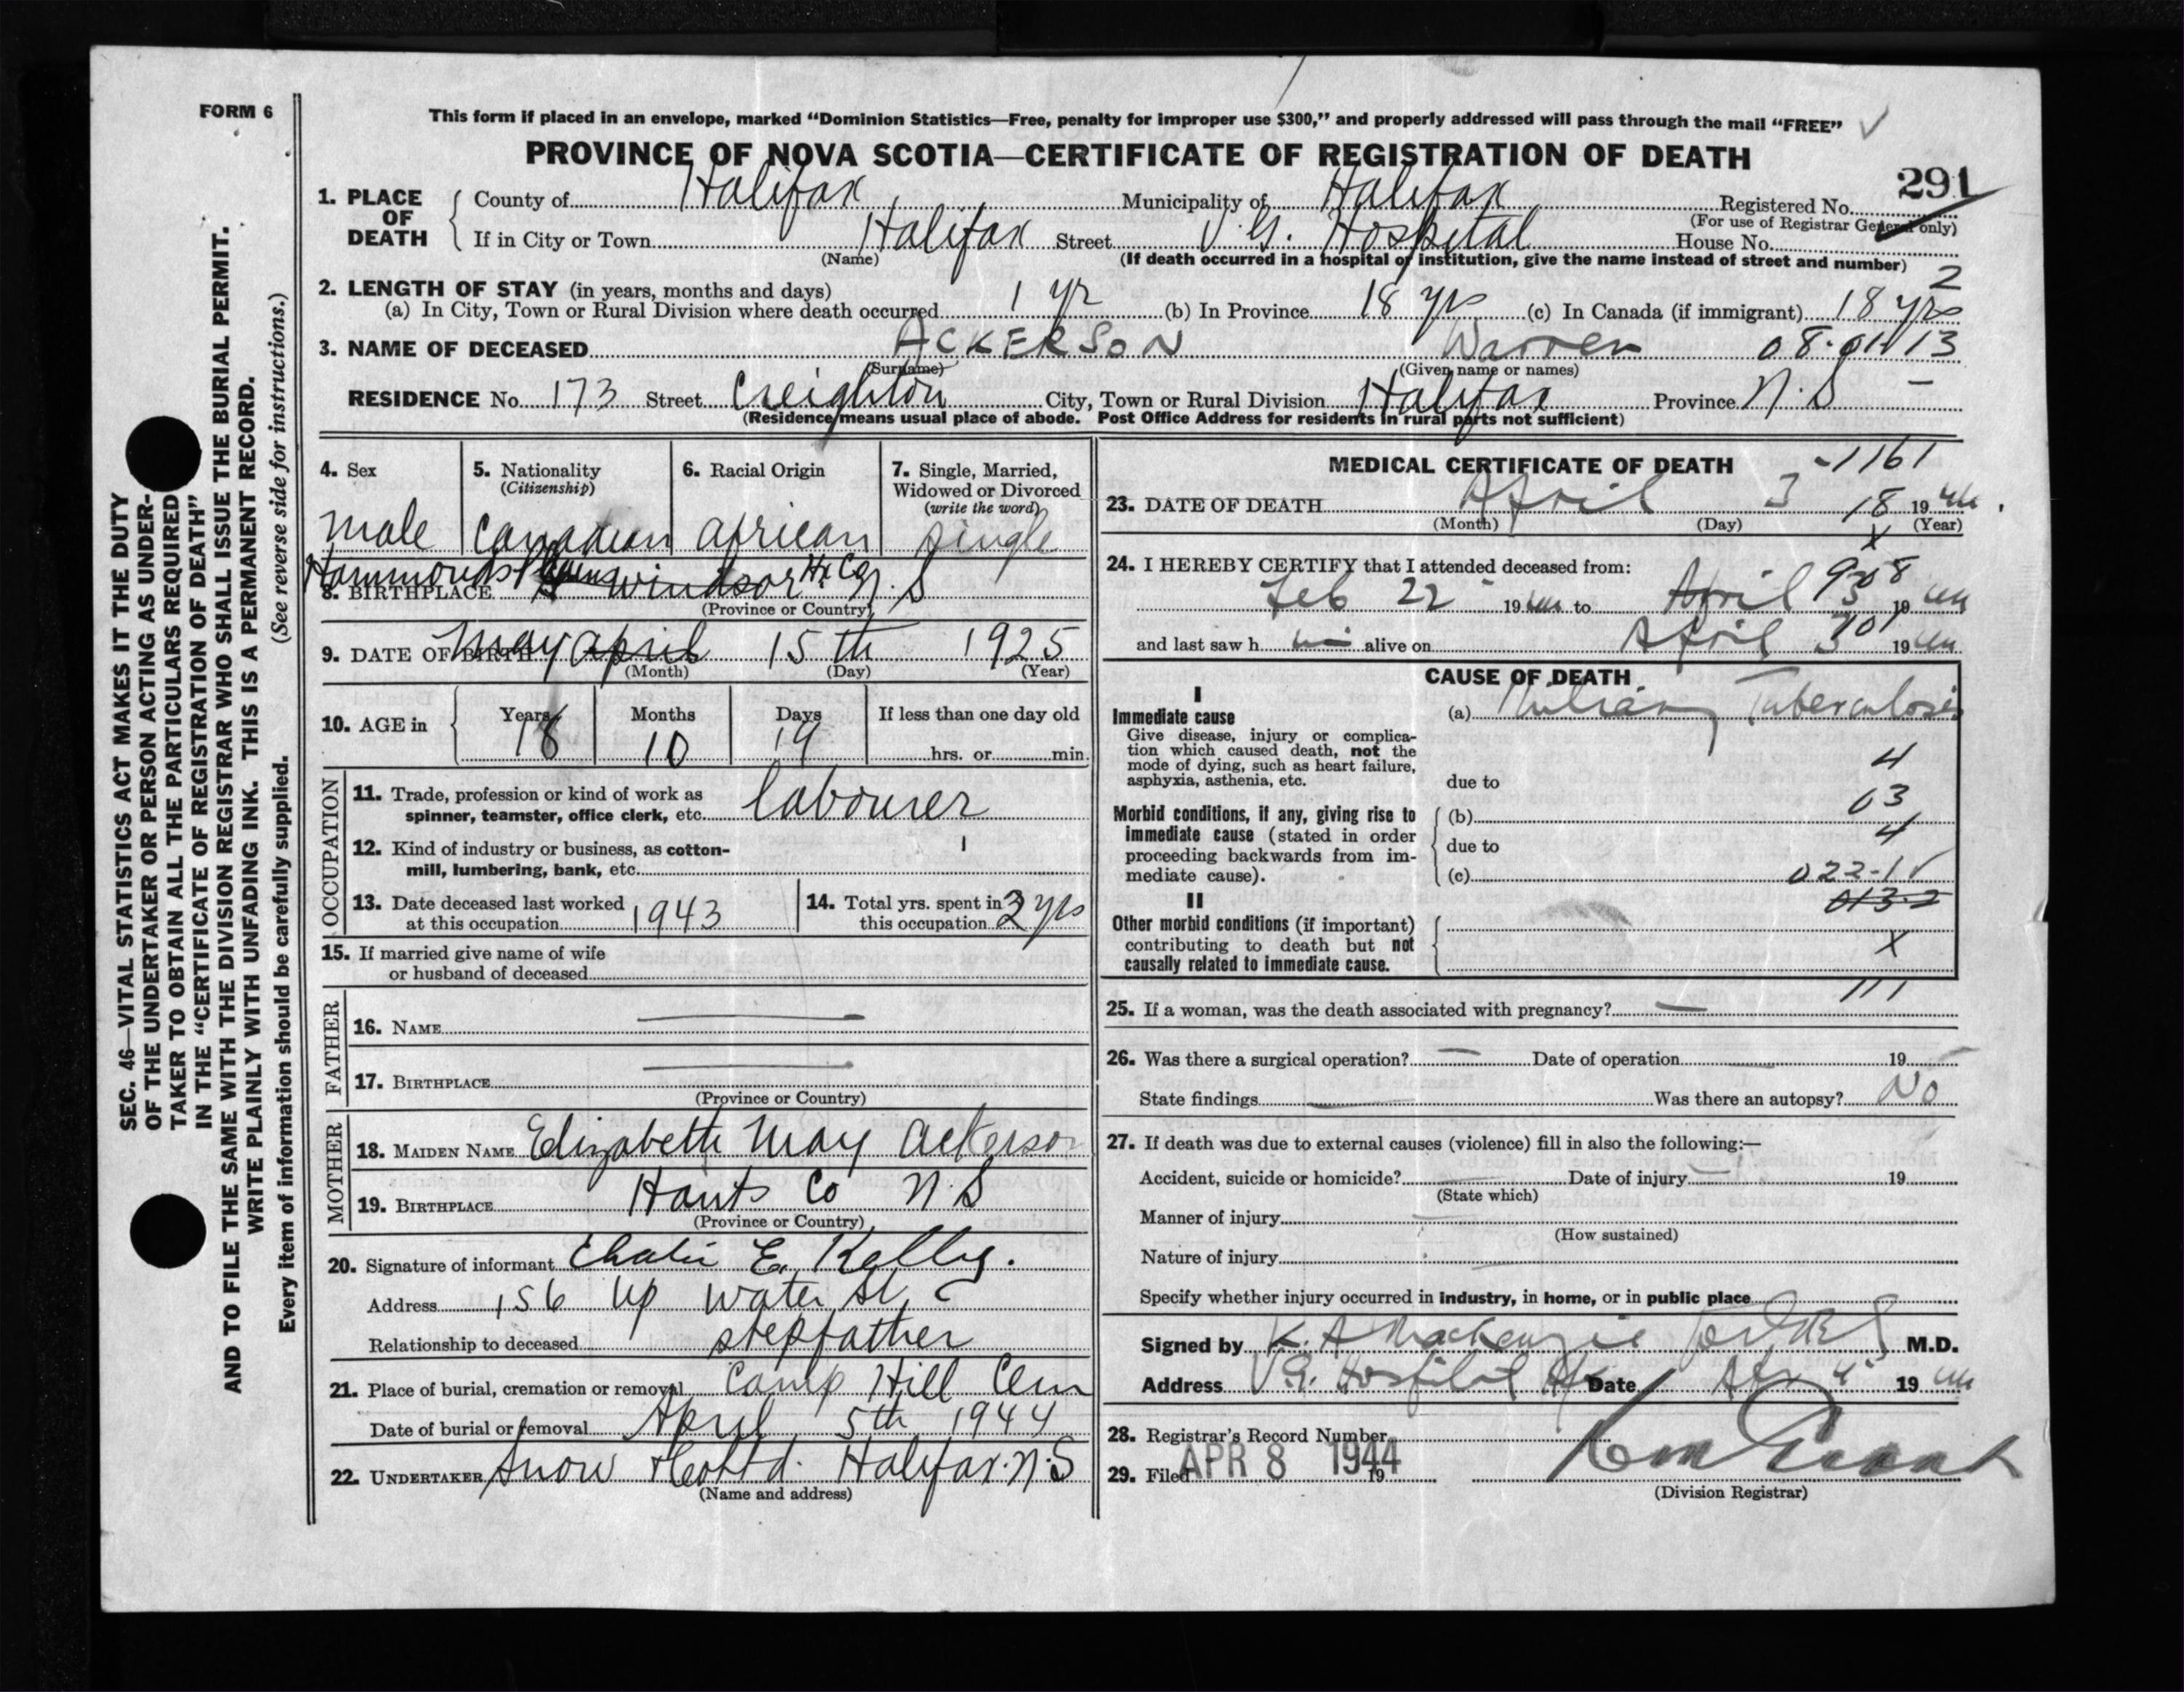 FORM 6
This form if placed in an envelope, marked “Dominion Statistics—Free, penalty for improper use $300,” and properly addressed will pass through the mail “FREE”
PROVINCE OF NOVA SCOTIA—CERTIFICATE OF REGISTRATION OF DEATH
291
1. PLACE OF DEATH
County of Halifax Municipality of Halifax Registered No.
(For use of Registrar General only)
If in City or Town Halifax Street V.G. Hospital House No.
(Name) (If death occurred in a hospital or institution, give the name instead of street and number)
2
2. LENGTH OF STAY (in years, months and days)
(a) In City, Town or Rural Division where death occurred 1 yr (b) In Province 18 yrs (c) In Canada (if immigrant) 18 yrs
3. NAME OF DECEASED ACKERSON Warren 08.01 13
(Surname) (Given name or names)
RESIDENCE No. 173 Street Creighton City, Town or Rural Division Halifax Province N.S —
(Residence means usual place of abode. Post Office Address for residents in rural parts not sufficient)
4. Sex
male
5. Nationality
(Citizenship)
Canadian
6. Racial Origin
african
7. Single, Married, Widowed or Divorced
(write the word)
single
8. BIRTHPLACE Hammonds Plains Windsor Hx Co N.S
(Province or Country)
9. DATE OF BIRTH May april 15th 1925
(Month) (Day) (Year)
10. AGE in
Years 18
Months 10
Days 19
If less than one day old
hrs. or min.
OCCUPATION
11. Trade, profession or kind of work as
spinner, teamster, office clerk, etc. labourer
12. Kind of industry or business, as cotton-
mill, lumbering, bank, etc.
13. Date deceased last worked
at this occupation 1943
14. Total yrs. spent in
this occupation 3 yrs
15. If married give name of wife
or husband of deceased
FATHER
16. NAME
17. BIRTHPLACE
(Province or Country)
MOTHER
18. MAIDEN NAME Elizabeth May Ackerson
19. BIRTHPLACE Hants Co N.S
(Province or Country)
20. Signature of informant E. Kelly.
Address 156 Up Water St,
Relationship to deceased stepfather
21. Place of burial, cremation or removal Camp Hill Cem
Date of burial or removal April 5th 1944
22. UNDERTAKER Snow & Co Ltd. Halifax. N.S
(Name and address)
MEDICAL CERTIFICATE OF DEATH
-1161
23. DATE OF DEATH April 3 18 1944
(Month) (Day) (Year)
X
24. I HEREBY CERTIFY that I attended deceased from:
908
Feb 22 1944 to April 3 1944
101
and last saw h im alive on April 3 1944
CAUSE OF DEATH
I
Immediate cause
Give disease, injury or complica-
tion which caused death, not the
mode of dying, such as heart failure,
asphyxia, asthenia, etc.
(a) Miliary Tuberculosis
4
due to
63
Morbid conditions, if any, giving rise to
immediate cause (stated in order
proceeding backwards from im-
mediate cause).
(b)
4
due to
(c) 022-1
013-2
II
Other morbid conditions (if important)
contributing to death but not
causally related to immediate cause.
X
111
25. If a woman, was the death associated with pregnancy? —
26. Was there a surgical operation? — Date of operation 19
State findings Was there an autopsy? No
27. If death was due to external causes (violence) fill in also the following:—
Accident, suicide or homicide? Date of injury 19
(State which)
Manner of injury
(How sustained)
Nature of injury
Specify whether injury occurred in industry, in home, or in public place
Signed by K. A Mackenzie M.D.
Address V.G. Hospital Hx Date Apr 4 1944
28. Registrar's Record Number
29. Filed APR 8 1944 19
(Division Registrar)
SEC. 46—VITAL STATISTICS ACT MAKES IT THE DUTY
OF THE UNDERTAKER OR PERSON ACTING AS UNDER-
TAKER TO OBTAIN ALL THE PARTICULARS REQUIRED
IN THE “CERTIFICATE OF REGISTRATION OF DEATH”
AND TO FILE THE SAME WITH THE DIVISION REGISTRAR WHO SHALL ISSUE THE BURIAL PERMIT.
WRITE PLAINLY WITH UNFADING INK. THIS IS A PERMANENT RECORD.
Every item of information should be carefully supplied. (See reverse side for instructions.)